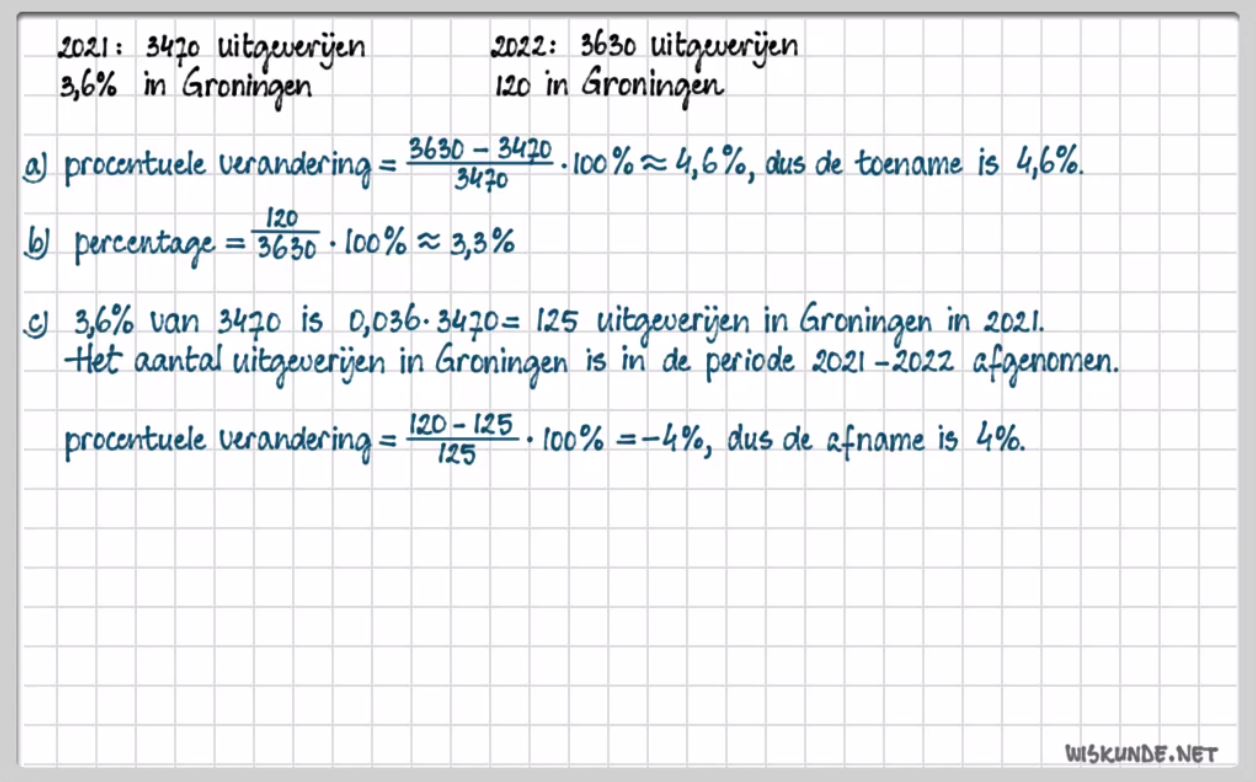 2021: 3470 uitgeverijen 2022: 3630 uitgeverijen
3,6% in Groningen 120 in Groningen
a) procentuele verandering = (3630 – 3470)/3470 · 100% ≈ 4,6%, dus de toename is 4,6%.
b) percentage = 120/3630 · 100% ≈ 3,3%
c) 3,6% van 3470 is 0,036 · 3470 = 125 uitgeverijen in Groningen in 2021.
Het aantal uitgeverijen in Groningen is in de periode 2021 – 2022 afgenomen.
procentuele verandering = (120 – 125)/125 · 100% = –4%, dus de afname is 4%.
WISKUNDE.NET